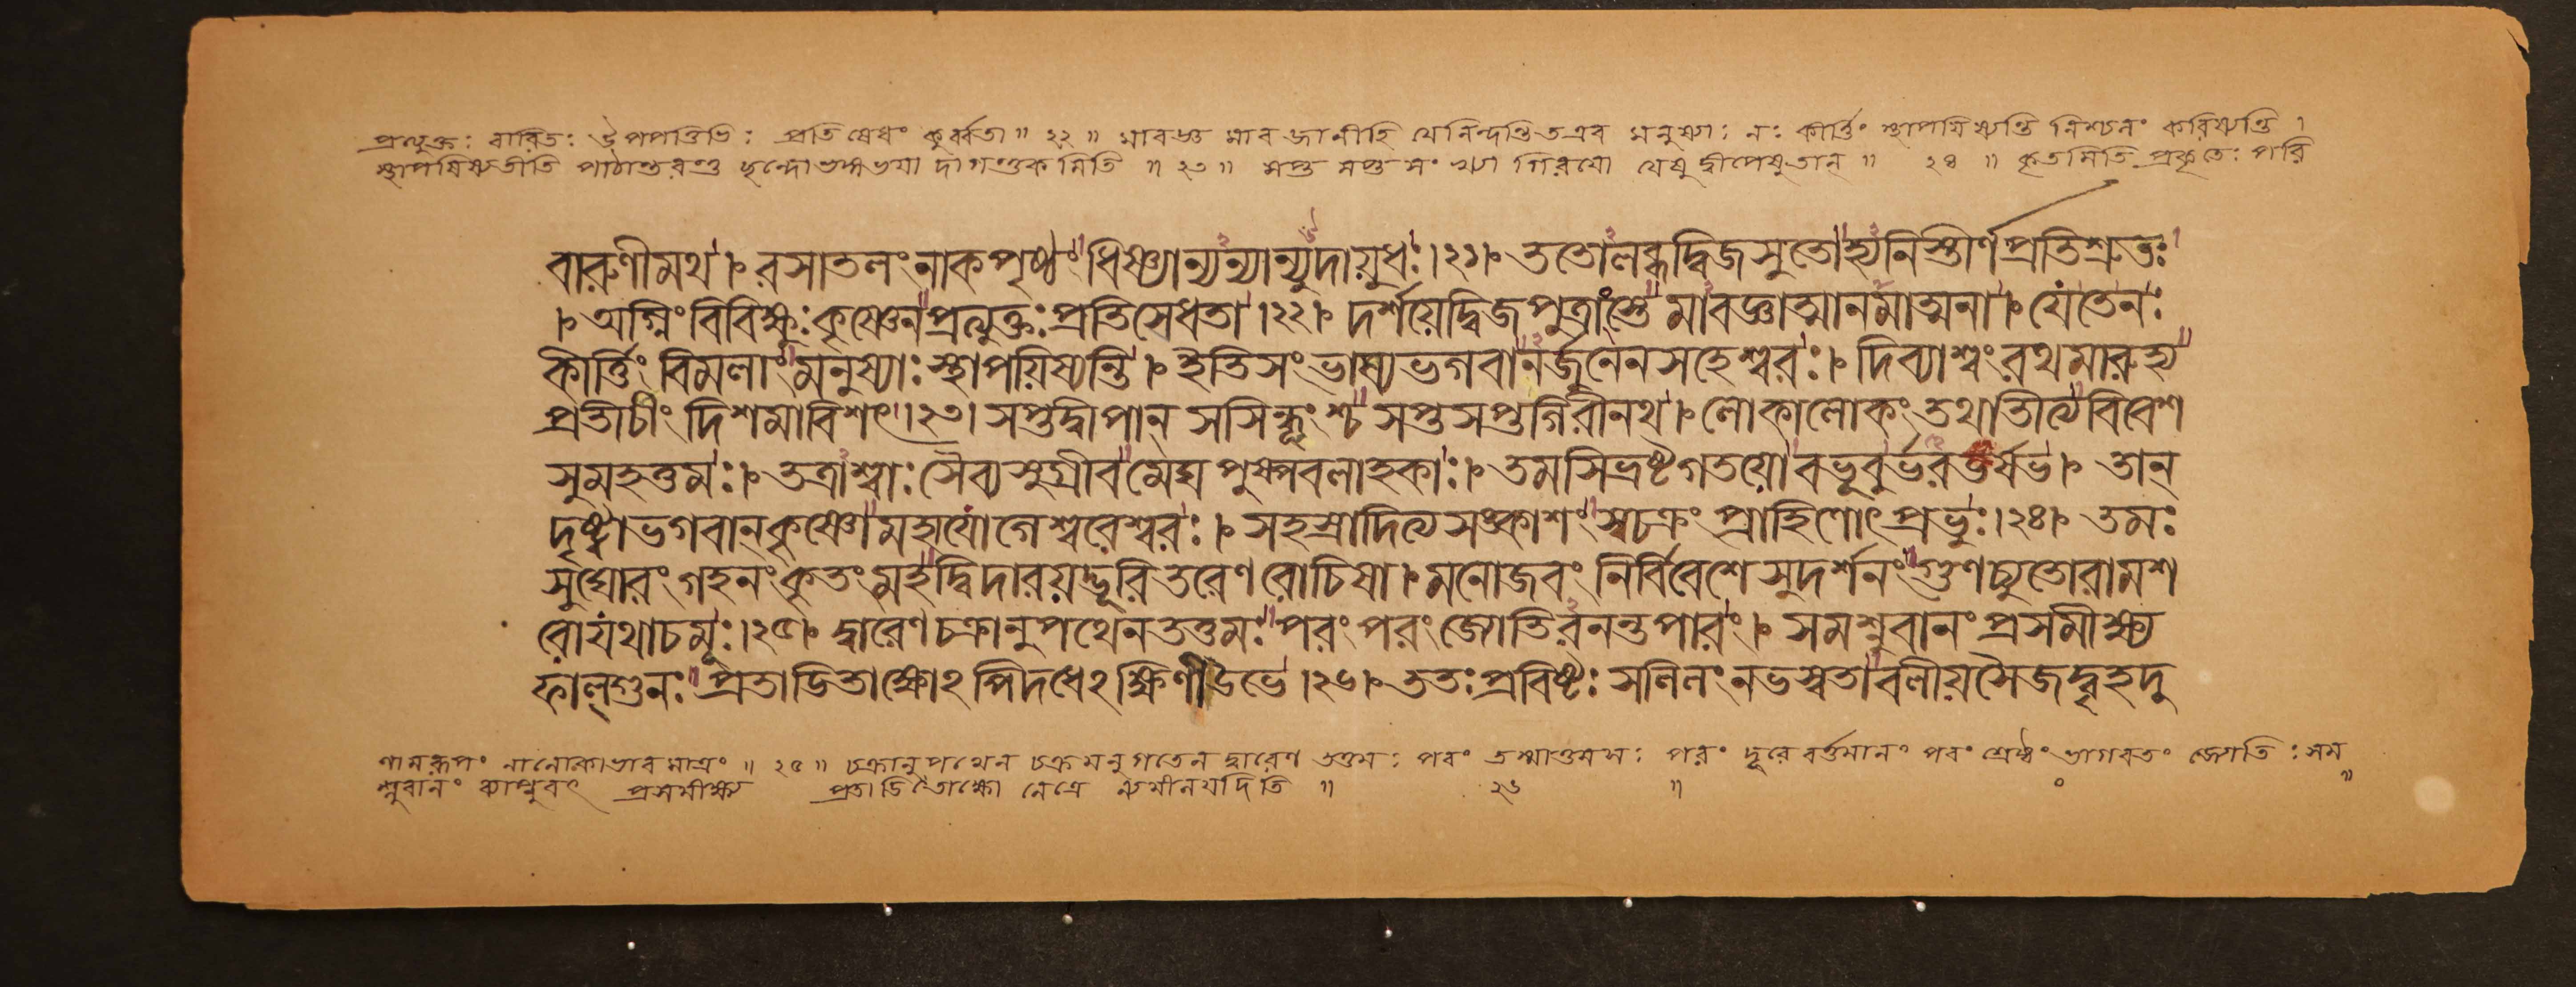 প্রত্যুক্তঃ বারিতঃ উপপত্তিভিঃ প্রতিষেধং কুর্ব্বতা ॥ ২২ ॥ মাবজ্ঞ মাবজানীহি যেনিন্দন্তিতএব মনুষ্যাঃ নঃ কীর্ত্তিং স্থাপয়িষ্যন্তি নিশ্চলং করিষ্যন্তি ।
স্থাপয়িষ্যতীতি পাঠান্তরন্তু ছন্দোভঙ্গভয়াদাগন্তুকমিতি ॥ ২৩ ॥ সপ্ত সপ্ত সংখ্যা গিরয়ো যেষু দ্বীপেষুতান্ ॥ ২৪ ॥ কৃতমিতি প্রকৃতেঃ পরি
বারুণীমথ । রসাতলংনাকপৃষ্ঠংধিষ্ণ্যান্যন্যান্যুদায়ুধঃ।২১। ততোলব্ধদ্বিজসুতোহ্যনিস্তীর্ণপ্রতিশ্রুতঃ
। অগ্নিংবিবিক্ষুঃকৃষ্ণেনপ্রত্যুক্তঃপ্রতিসেধতা।২২। দর্শয়েদ্বিজপুত্রাংস্তে মাবজ্ঞাত্মানমাত্মনা। যেতেনঃ
কীর্ত্তিং বিমলাংমনুষ্যাঃস্থাপয়িষ্যন্তি। ইতিসংভাষ্যভগবানর্জুনেনসহেশ্বরঃ। দিব্যাশ্বংরথমারুহ্য
প্রতীচীং দিশমাবিশৎ।২৩। সপ্তদ্বীপান্ সসিন্ধূংশ্চ সপ্তসপ্তগিরীনথ। লোকালোকংতথাতীত্যবিবেশ
সুমহত্তমঃ। তত্রাশ্বাঃসৈব্যসুগ্রীবমেঘপুষ্পবলাহকাঃ। তমসিভ্রষ্টগতয়োবভূবুর্ভরতর্ষভ। তান্
দৃষ্ট্বাভগবান্কৃষ্ণোমহাযোগেশ্বরেশ্বরঃ । সহস্রাদিত্যসঙ্কাশংস্বচক্রং প্রাহিণোৎ প্রভুঃ।২৪। তমঃ
সুঘোরংগহনংকৃতংমহদ্বিদারয়দ্ভূরিতরেণরোচিষা। মনোজবং নির্বিবেশে সুদর্শনংগুণচ্যুতোরামশ
রোযথাচমূঃ।২৫। দ্বারেণচক্রানুপথেনতত্তমঃপরংপরংজোতিরনন্তপারং। সমশ্নুবানং প্রসমীক্ষ্য
ফাল্গুনঃপ্রতাডিতাক্ষোঽপিদধেঽক্ষিণীউভে।২৬। ততঃপ্রবিষ্টঃ সলিলংনভস্বতাবলীয়সৈজদ্বৃহদূ
ণামরূপং নালোকাভাবমাত্রং ॥ ২৫ ॥ চক্রানুপথেন চক্রমনুগতেন দ্বারেণ তত্তমঃ পরং তস্মাত্তমসঃ পরং দূরে বর্ত্তমানং পরং শ্রেষ্ঠং ভাগবতং জ্যোতিঃ সম
শ্নুবানং ব্যাপ্নুবৎ প্রসমীক্ষ্য প্রতাডিতাক্ষো নেত্রে ন্যমীলয়দিতি ॥ ২৬ ॥